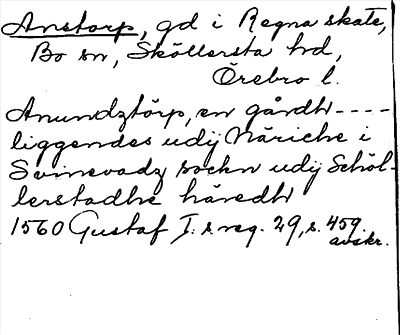 Anstorp, gd i Regna skate,
Bo sn, Sköllersta hd,
Örebro l.
Anundztörp, en gårdh ----
liggendes udij Näriche i
Svinevadz sockn udij Schöl-
lerstadhe häredh
1560 Gustaf I:s reg. 29, s. 459.
avskr.